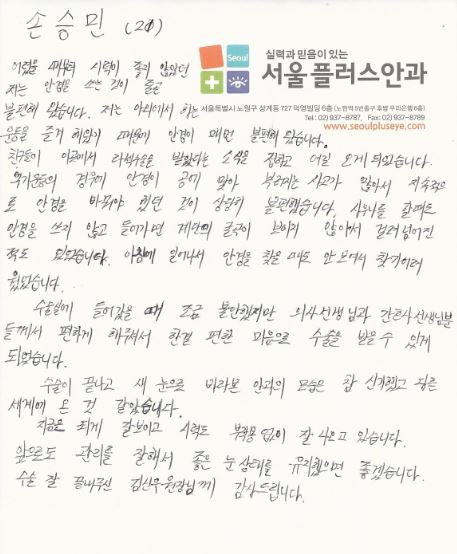 손승민 (20)
Seoul
실력과 믿음이 있는
서울플러스안과
서울특별시 노원구 상계동 727 덕영빌딩 6층 (노원역 9번출구 후방 우리은행 6층)
Tel: 02) 937-8787, Fax: 02) 937-8789
www.seoulpluseye.com
어렸을 때부터 시력이 좋지 않았던
저는 안경을 쓰는 것이 줄곧
불편해 왔습니다. 저는 야외에서 하는
운동을 즐겨 해왔기 때문에 안경이 매번 불편해 왔습니다.
친구들이 이곳에서 라식수술을 받았다는 소식을 접하고 여길 오게 되었습니다.
구기운동의 경우에 안경이 공에 맞아 부러지는 사고가 많아서 지속적으
로 안경을 바꿔야 했던 것이 상당히 불편했습니다. 사우나를 갈때도
안경을 쓰지 않고 들어가면 계단의 굴곡이 보이지 않아서 걸려 넘어진
적도 있었습니다. 아침에 일어나서 안경을 찾을 때도 안보여서 찾기 어려
웠었습니다.
수술실에 들어갔을 때 조금 불안했지만 의사선생님과 간호사선생님분
들께서 편하게 해주셔서 한결 편한 마음으로 수술을 받을 수 있게
되었습니다.
수술이 끝나고 새 눈으로 바라본 안과의 모습은 참 신기했고 다른
세계에 온 것 같았습니다.
지금은 되게 잘보이고 시력도 부작용 없이 잘 나오고 있습니다.
앞으로도 관리를 잘해서 좋은 눈 상태를 유지했으면 좋겠습니다.
수술 잘 끝내주신 김선우원장님께 감사드립니다.